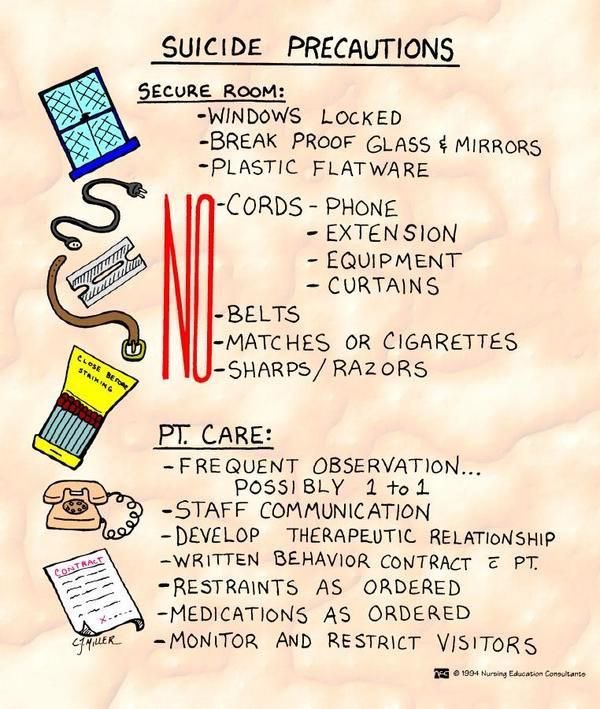 SUICIDE PRECAUTIONS
SECURE ROOM:
-WINDOWS LOCKED
-BREAK PROOF GLASS & MIRRORS
-PLASTIC FLATWARE
NO
-CORDS - PHONE
- EXTENSION
- EQUIPMENT
- CURTAINS
-BELTS
-MATCHES OR CIGARETTES
-SHARPS/RAZORS
CLOSE BEFORE
STRIKING
PT. CARE:
-FREQUENT OBSERVATION...
POSSIBLY 1 to 1
-STAFF COMMUNICATION
-DEVELOP THERAPEUTIC RELATIONSHIP
-WRITTEN BEHAVIOR CONTRACT c̄ PT.
-RESTRAINTS AS ORDERED
-MEDICATIONS AS ORDERED
-MONITOR AND RESTRICT VISITORS
CONTRACT
X-----
CJMILLER
NEC © 1994 Nursing Education Consultants